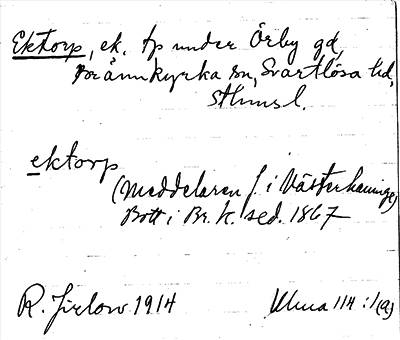 Ektorp, ek. tp under Örby gd,
Brännkyrka sn, Svartlösa hd,
Sthmsl.
ektorp
(Meddelaren f. i Västerhaninge)
Bott i Br. k. sed. 1867
R. Jirlow 1914 Ulma 114:1(a)